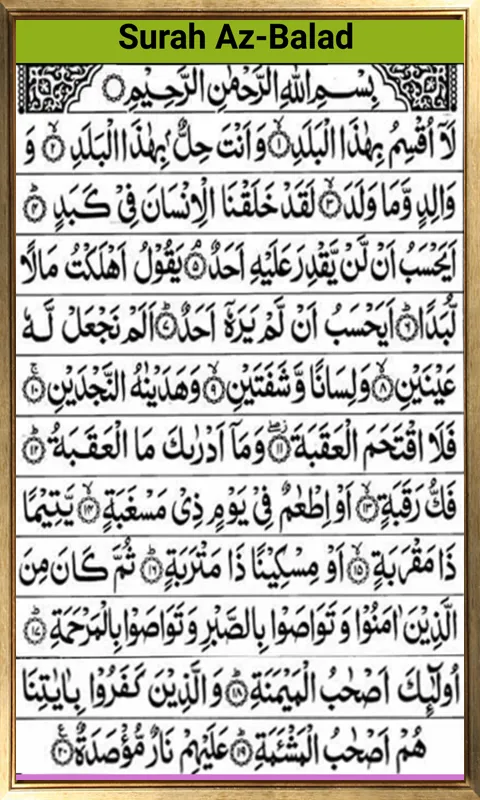 Surah Az-Balad
بِسْمِ اللهِ الرَّحْمٰنِ الرَّحِيْمِ
لَاۤ اُقْسِمُ بِهٰذَا الْبَلَدِ ۝۱ وَاَنْتَ حِلٌّۢ بِهٰذَا الْبَلَدِ ۝۲ وَ
وَالِدٍ وَّمَا وَلَدَ ۝۳ لَقَدْ خَلَقْنَا الْاِنْسَانَ فِيْ كَبَدٍ ۝۴
اَيَحْسَبُ اَنْ لَّنْ يَّقْدِرَ عَلَيْهِ اَحَدٌ ۝۵ يَقُوْلُ اَهْلَكْتُ مَالًا
لُّبَدًا ۝۶ اَيَحْسَبُ اَنْ لَّمْ يَرَهٗۤ اَحَدٌ ۝۷ اَلَمْ نَجْعَلْ لَّهٗ
عَيْنَيْنِ ۝۸ وَلِسَانًا وَّشَفَتَيْنِ ۝۹ وَهَدَيْنٰهُ النَّجْدَيْنِ ۝۱۰
فَلَا اقْتَحَمَ الْعَقَبَةَ ۝۱۱ وَمَاۤ اَدْرٰىكَ مَا الْعَقَبَةُ ۝۱۲
فَكُّ رَقَبَةٍ ۝۱۳ اَوْ اِطْعٰمٌ فِيْ يَوْمٍ ذِيْ مَسْغَبَةٍ ۝۱۴ يَّتِيْمًا
ذَا مَقْرَبَةٍ ۝۱۵ اَوْ مِسْكِيْنًا ذَا مَتْرَبَةٍ ۝۱۶ ثُمَّ كَانَ مِنَ
الَّذِيْنَ اٰمَنُوْا وَتَوَاصَوْا بِالصَّبْرِ وَتَوَاصَوْا بِالْمَرْحَمَةِ ۝۱۷
اُولٰٓئِكَ اَصْحٰبُ الْمَيْمَنَةِ ۝۱۸ وَالَّذِيْنَ كَفَرُوْا بِاٰيٰتِنَا
هُمْ اَصْحٰبُ الْمَشْـَٔمَةِ ۝۱۹ عَلَيْهِمْ نَارٌ مُّؤْصَدَةٌ ۝۲۰